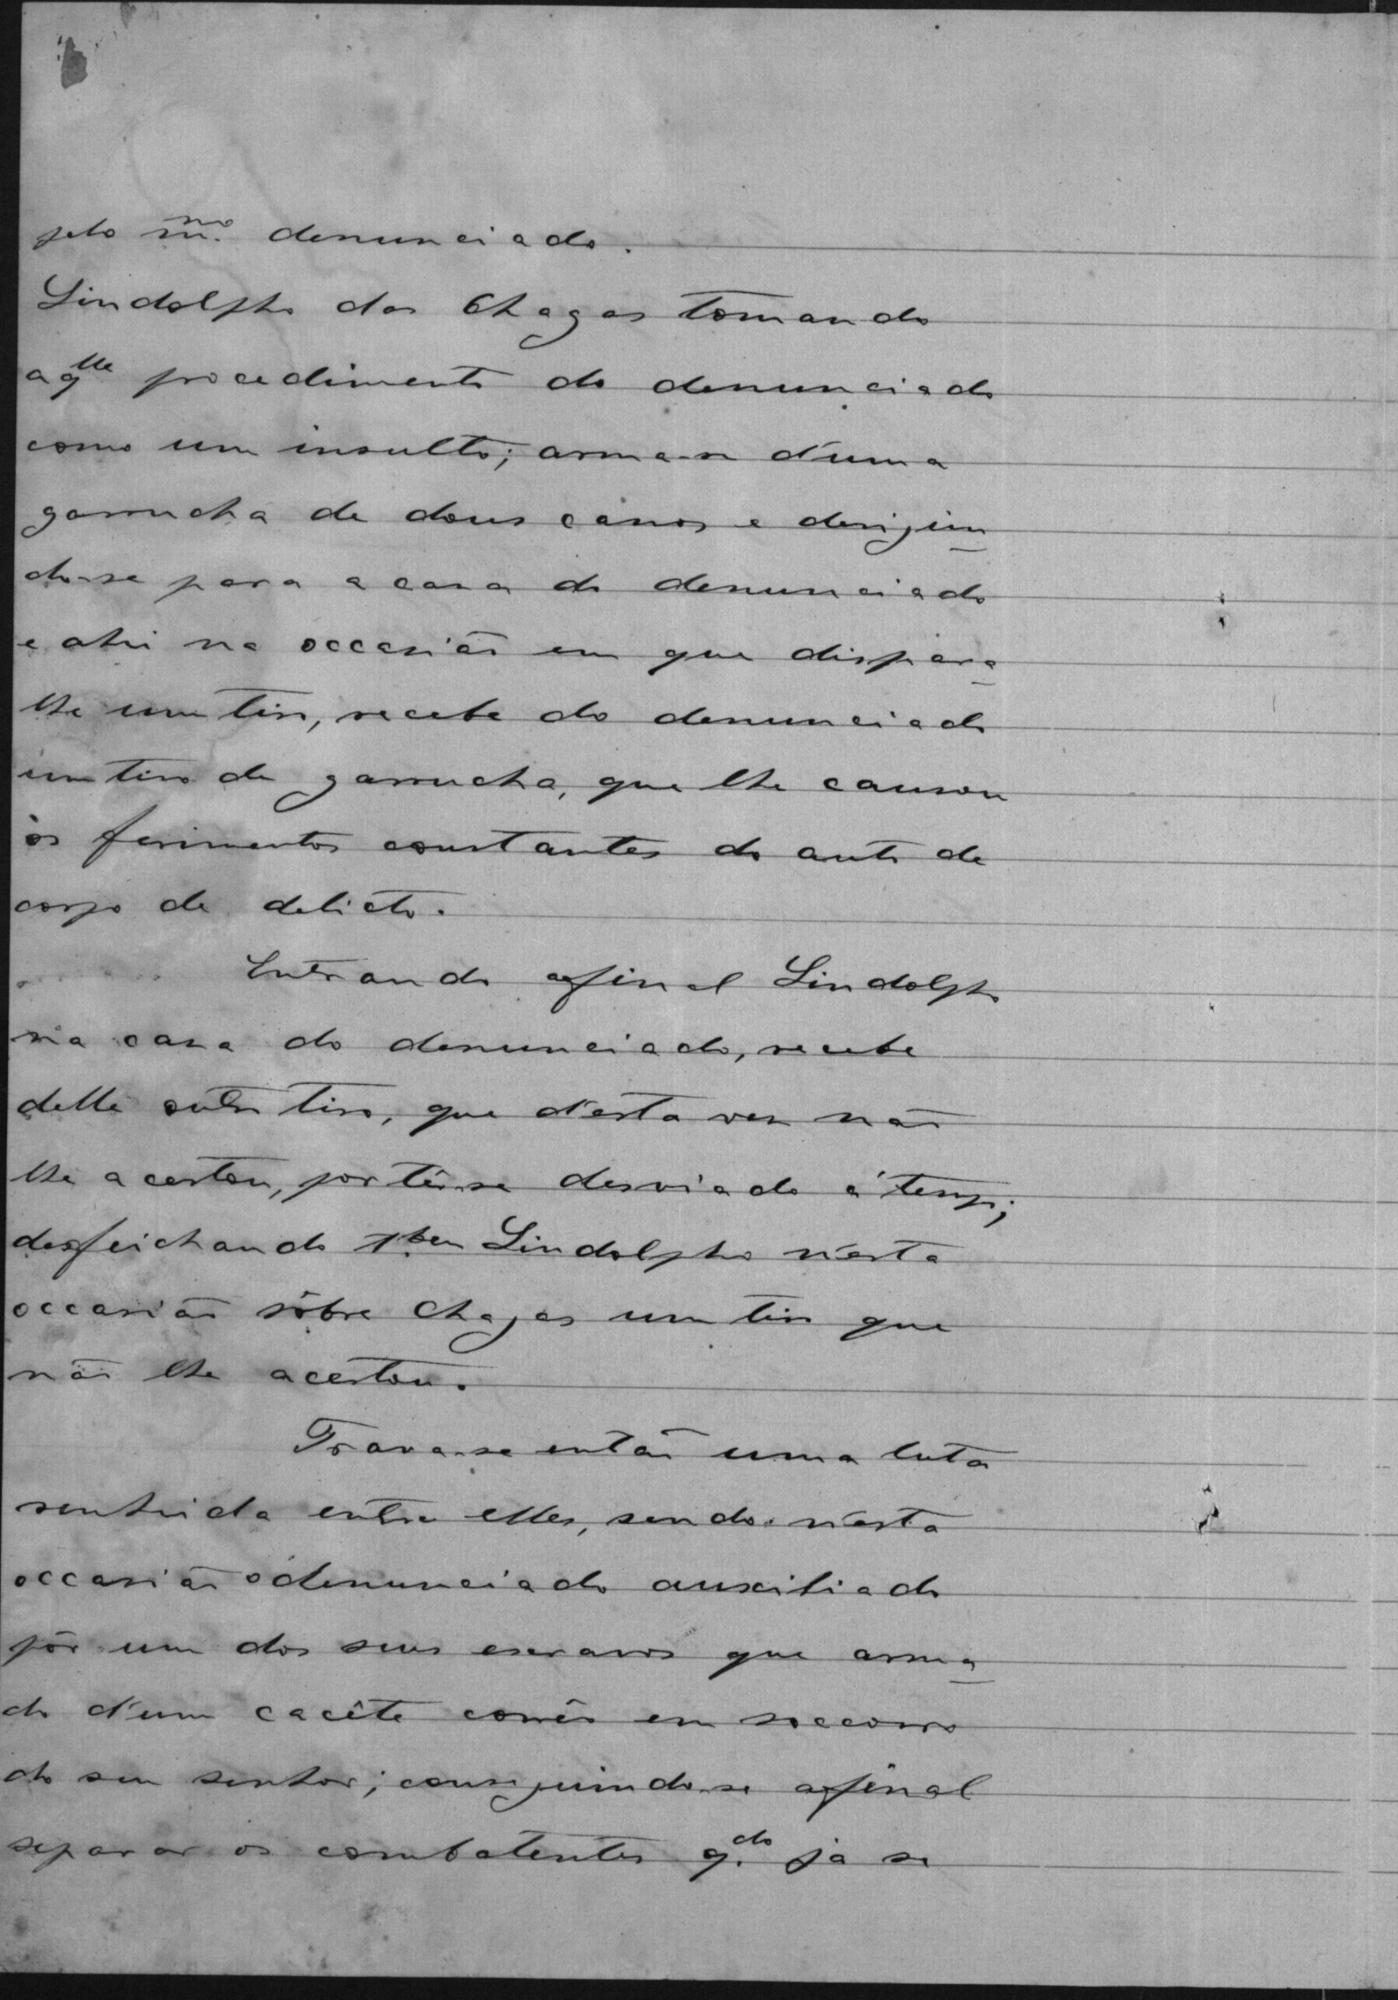 pelo m.mo denunciado.
Lindolpho das Chagas tomando
aqlle procedimento do denunciado
como um insulto; arma-se d'uma
garrucha de dous canos e derigin
do-se para a casa do denunciado
e ahi na occasião em que dispara
lhe um tiro, recebe do denunciado
um tiro de garrucha, que lhe causou
os ferimentos constantes do auto de
corpo de delicto.
Entrando afinal Lindolpho
na casa do denunciado, recebe
delle outro tiro, que d'esta vez não
lhe acertou, por ter-se desviado á tempo;
desfeichando tbem Lindolpho n'esta
occasião sobre Chagas um tiro que
não lhe acertou.
Trava-se então uma luta
renhida entre elles, sendo n'esta
occasião o denunciado auxiliado
pôr um dos seus escravos que arma
do d'um cacête corrêo em soccorro
do seu senhor; conseguindo-se afinal
separar os combatentes q.do já se